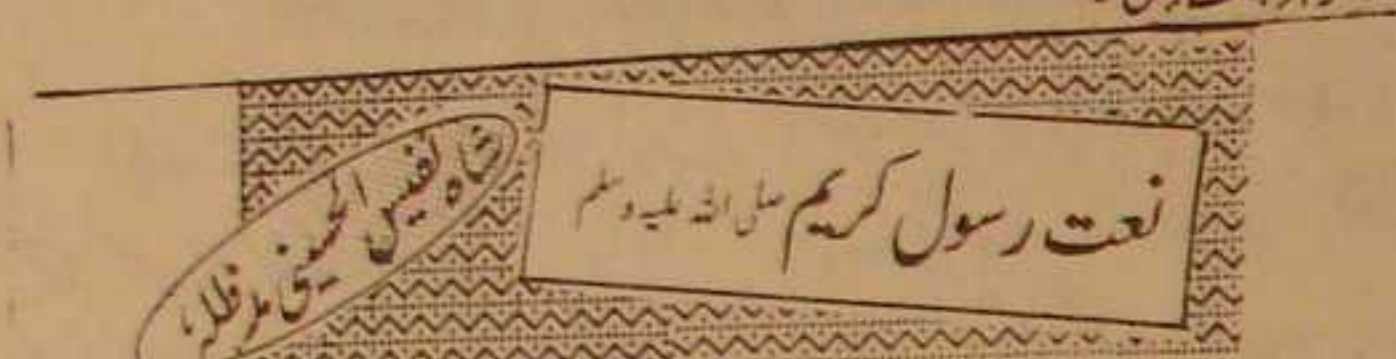 نعت رسول کریم صلی اللہ علیہ وسلم
شاہ نفیس الحسینی مدظلہ،